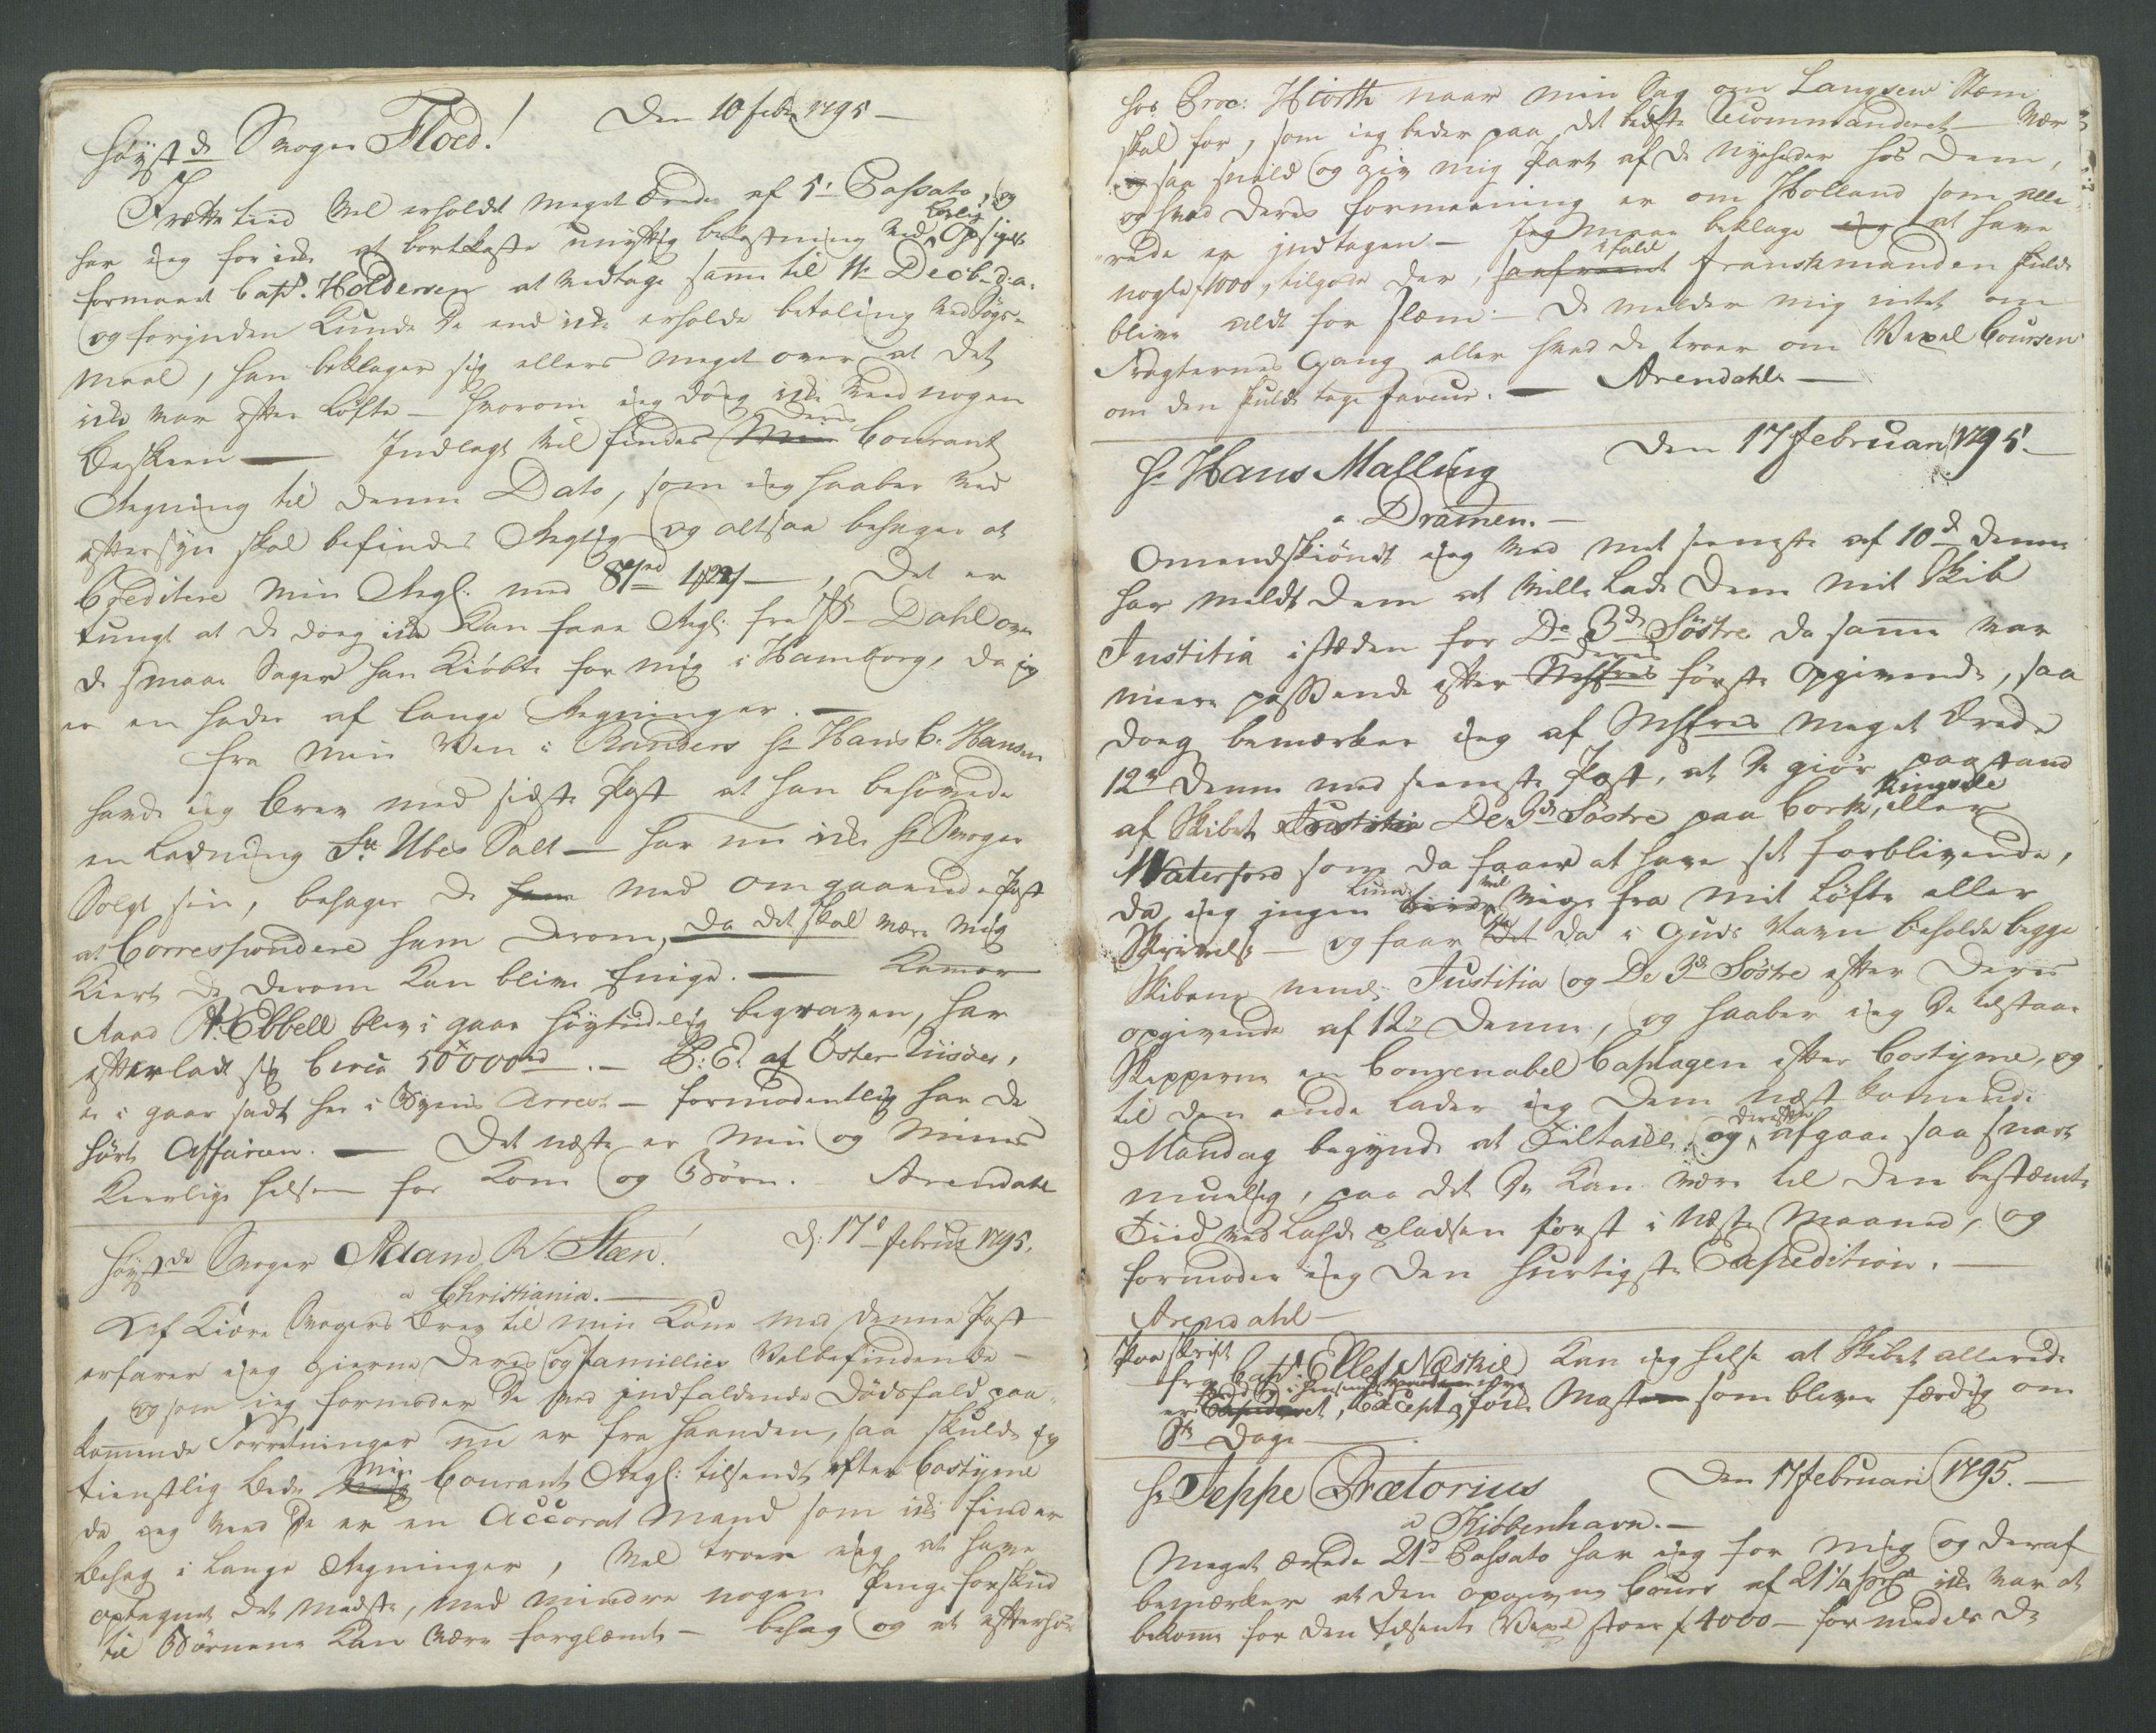 Høyst d Svoger Floed! Den 10 febr 1795 —
I rette tiid Vel erholdt meget Ærede af 5' Passato, og
har jeg for ikke at bortkaste unyttig bekostning ved Lovlig Opsigelse
formaaet Capt. Holdersen at Modtage samme til 11te Decbr d: a:
og forinden Kunde De end ikke erholde betaling ved Søgs-
maal, han beklager sig ellers meget over at det
ikke var efter Løfte — hvorom jeg dog ikke Veed nogen
Beskeen — Indlagt Vil findes Deres Courant
Regning til denne Dato, som jeg haaber ved
eftersyn skal befindes Rigtig og altsaa behager at
Creditere Min Regl: med, Det er
tungt at De dog ikke Kan faae Regl: fra Hr Dahl over
de smaae Sager han Kiøbte for mig i Hamborg, da jeg
er en hader af lange Regninger. —
Fra Min Ven i Randers Hr Hans C. Hansen
havde jeg Brev med sidste Post at han behøvede
en Ladning St Ubes Salt — har nu ikke Hr Svoger
Solgt sin, behager De med omgaaende Post
at Correspondere ham derom, da det skal være mig
Kiært De derom Kan blive Enige. — Kammer
Raad P. Ebbell blev i gaar høytidelig begraven, har
efterladt sig Circa 50000 rd. — P: E: af Øster Riisøer,
er i gaar sadt her i Byens Arrest — formodentlig har De
hørt Affairen. — Det næste er Min og Mines
Kierlige hilsen for Kone og Børn. Arendahl
Høyst de Svoger Adam R Steen! d: 17 februar 1795.
a Christiania. —
Af Kiære Svogers Brev til min Kone med denne Post
erfarer jeg gierne Deres og Families Velbefindende —
og som jeg formoder De ved indfaldende Dødsfald paa-
kommende Forretninger nu er fra haanden, saa skulde jeg
tienstlig bede Min Courant Regl: tilsendt efter Costyme
da jeg veed De er en Accorat Mand som ikke finder
behag i lange Regninger, Vel troer jeg at have
optegnet det meeste, med mindre nogen Penge forskud
til Børnene Kan være forglemt — behag og at efterhøre
hos Proc: Hiorth naar min Sag om Langsew Stem
skal for, som jeg beder paa det bedste Recommanderet — Vær
saa snild og giv mig Part af de Nyeheder hos Dem,
og hvad Deres formeening er om Holland som alle-
rede er indtagen — Jeg maae beklage at have
nogle f 1000, tilgode der, i fald franskmanden skulde
blive aldt for slem — De melder mig intet om
Fragternes Gang eller hvad De troer om Vexel Coursen
om den skulde tage faveur. — Arendahl —
Hr Hans Malling Den 17 februari 1795. —
a Dramen. —
Omendskiøndt jeg ved mit seeneste af 10d denne
har meldt Dem at ville lade Dem mit Skib
Justitia isteden for De 3de Søstre da samme var
meere passende efter Deres første Opgivende, saa
dog bemærker jeg af meget Ærede
12te denne med seeneste Post, at De giør paastand
af Skibet De 3de Søstre paa Cork, Kingsale eller
Waterford som da faaer at have sit forblivende,
da jeg ingen vil vige fra mit Løfte eller
Skrivelse — og faar De da i Guds Navn beholde begge
Skibene nemlig Justitia og De 3de Søstre efter Deres
opgivende af 12te denne, og haaber jeg De tilstaar
Skipperne en Convenabel Caplagen efter Costyme, og
til den ende lader jeg dem næst kommende
Mandag begynde at Tiltakle og derefter afgaae saa snart
muelig, paa det De Kan være til den bestemte
Tiid ved Ladepladsen først i næste Maaned, og
formoder jeg den hurtigste Expedition. —
Arendahl —
Paa Skrift
fra Capt Ellef Neskil Kan jeg hilse at Skibet allerede
er, Except for Masten som bliver færdig om
8te Dage —
Hr Jeppe Prætorius Den 17 februari 1795. —
a Kiøbenhavn. —
Meget ærede 21d Passato har jeg for mig og deraf
bemærker at den opgivne Cours af 21 1/4 ikke var at
bekomme for den tilsendte Vexel stoer f 4000 — formedelst De